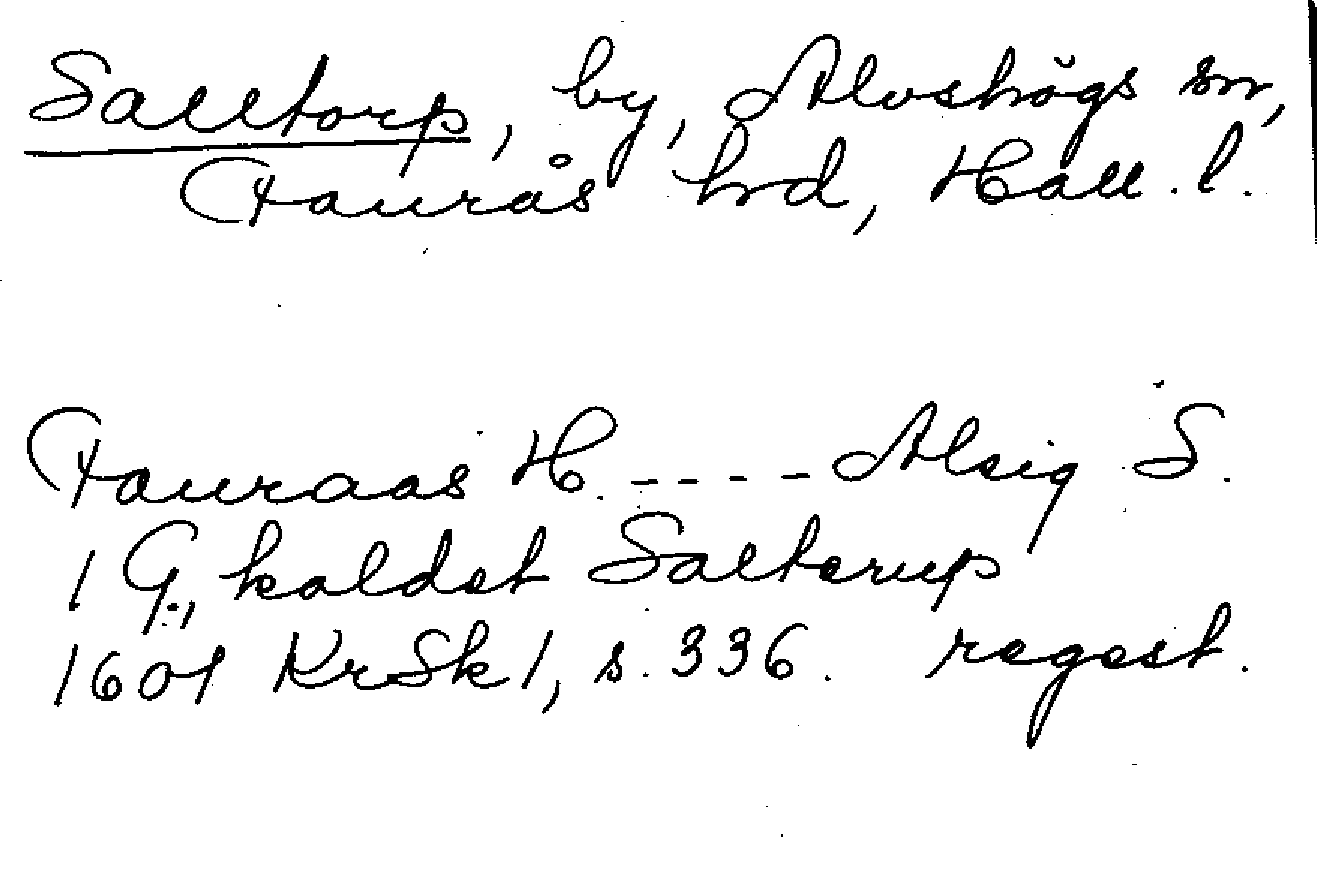 Salltorp, by, Alvshögs sn,
Faurås hrd, Hall. l.
Fauraas H. ---- Alsig S.
1 G., kaldet Salterup
1601 KrSk 1, s. 336. regest.